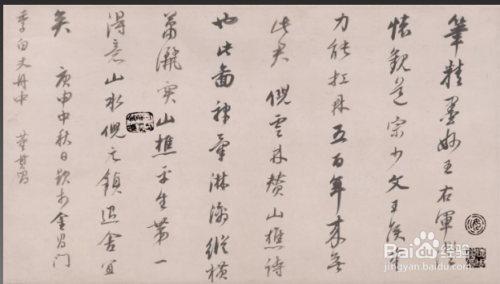 筆精墨妙王右軍澄
懷觀道宗少文王侯筆
力能扛鼎五百年來無
此君 倪雲林贊山樵詩
也此圖神氣淋漓縱橫
蕭灑實山樵平生第一
得意山水倪元鎮退舍宜
矣 庚申中秋日題於金昌門
季白丈舟中 董其昌
Baidu 经验
jingyan.baidu.com